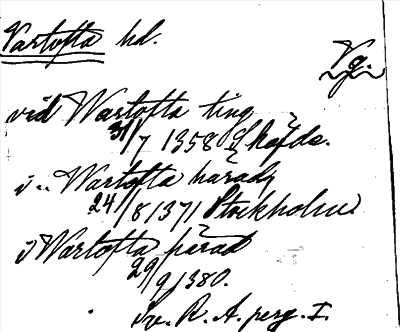 Vartofta hd.
Vg.
vid Wartofta ting
31/7 1358 Skofde.
i .. Wartofta harad
24/8 1371 Stockholm.
i Wartofta härad
29/9 1380.
Sv. R. A. perg. I.